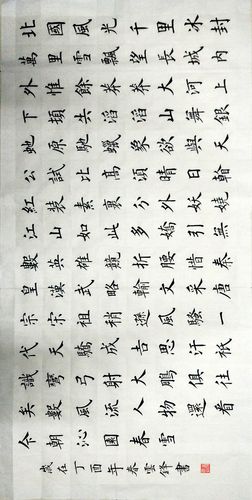 北國風光千里冰封
萬里雪飄望長城內
外惟餘莽莽大河上
下頓失滔滔山舞銀
虵原馳蠟象欲與天
公試比高須晴日看
紅裝素裹分外妖嬈
江山如此多嬌引無
數英雄競折腰惜秦
皇漢武略輸文采唐
宗宋祖稍遜風騷一
代天驕成吉思汗衹
識彎弓射大鵰俱往
矣數風流人物還看
今朝沁園春雪
歲在丁酉年春雲鋒書